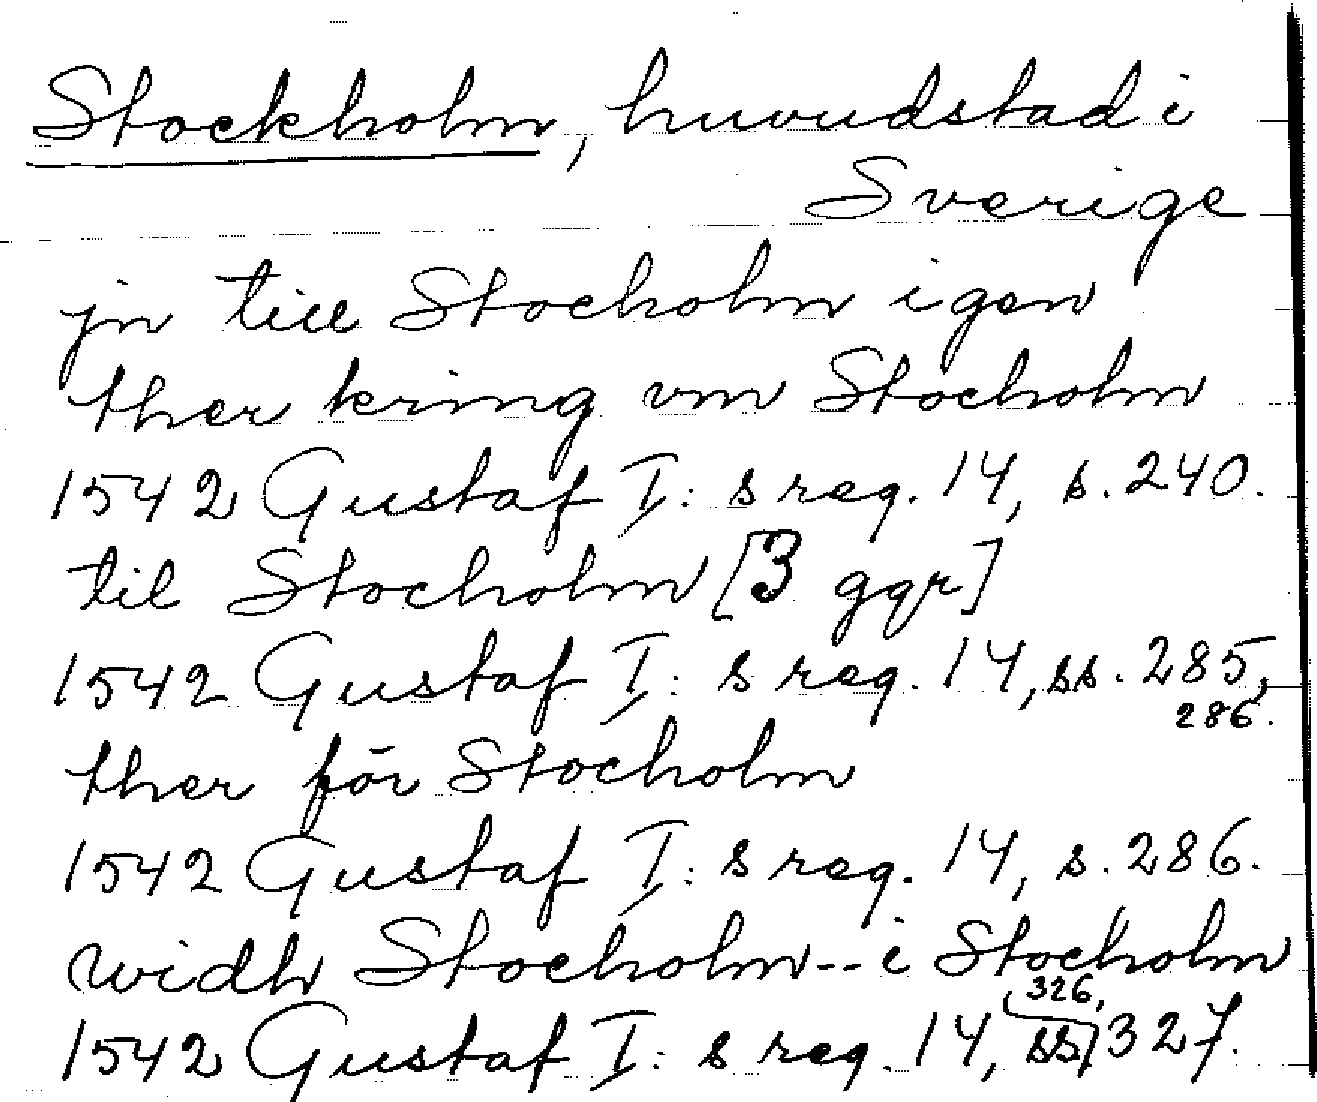 Stockholm, huvudstad i
Sverige
jn till Stocholm igen
ther kring vm Stocholm
1542 Gustaf I:s reg. 14, s. 240.
til Stocholm [3 ggr]
1542 Gustaf I:s reg. 14, ss. 285,
286.
ther för Stocholm
1542 Gustaf I:s reg. 14, s. 286.
widh Stocholm -- i Stocholm
1542 Gustaf I:s reg. 14, ss. 326, 327.